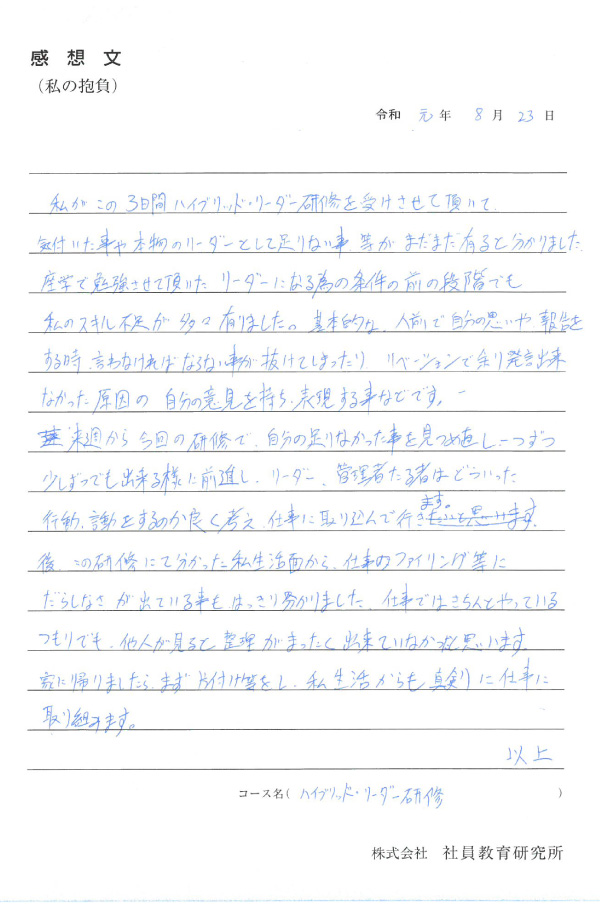 感想文
(私の抱負)
令和 元年 8月 23日
私がこの3日間ハイブリッド・リーダー研修を受けさせて頂いて、
気付いた事や本物のリーダーとして足りない事等がまだまだ有ると分かりました。
座学で勉強させて頂いたリーダーになる為の条件の前の段階でも
私のスキル不足が多々有りました。基本的な、人前で自分の思いや報告を
する時、言わなければならない事が抜けてしまったり リベーションで余り発言出来
なかった原因の自分の意見を持ち、表現する事などです。
来週から今回の研修で、自分の足りなかった事を見つめ直し一つずつ
少しずつでも出来る様に前進し、リーダー、管理者たる者はどういった
行動、言動をするのか良く考え、仕事に取り込んで行きます。
後、この研修にて分かった私生活面から、仕事のファイリング等に
だらしなさが出ている事もはっきり分かりました。仕事ではきちんとやっている
つもりでも、他人が見ると整理がまったく出来ていなかったと思います。
家に帰りましたらまず片付け等をし、私生活からも真剣に仕事に
取り組みます。
以上
コース名(ハイブリッド・リーダー研修)
株式会社 社員教育研究所